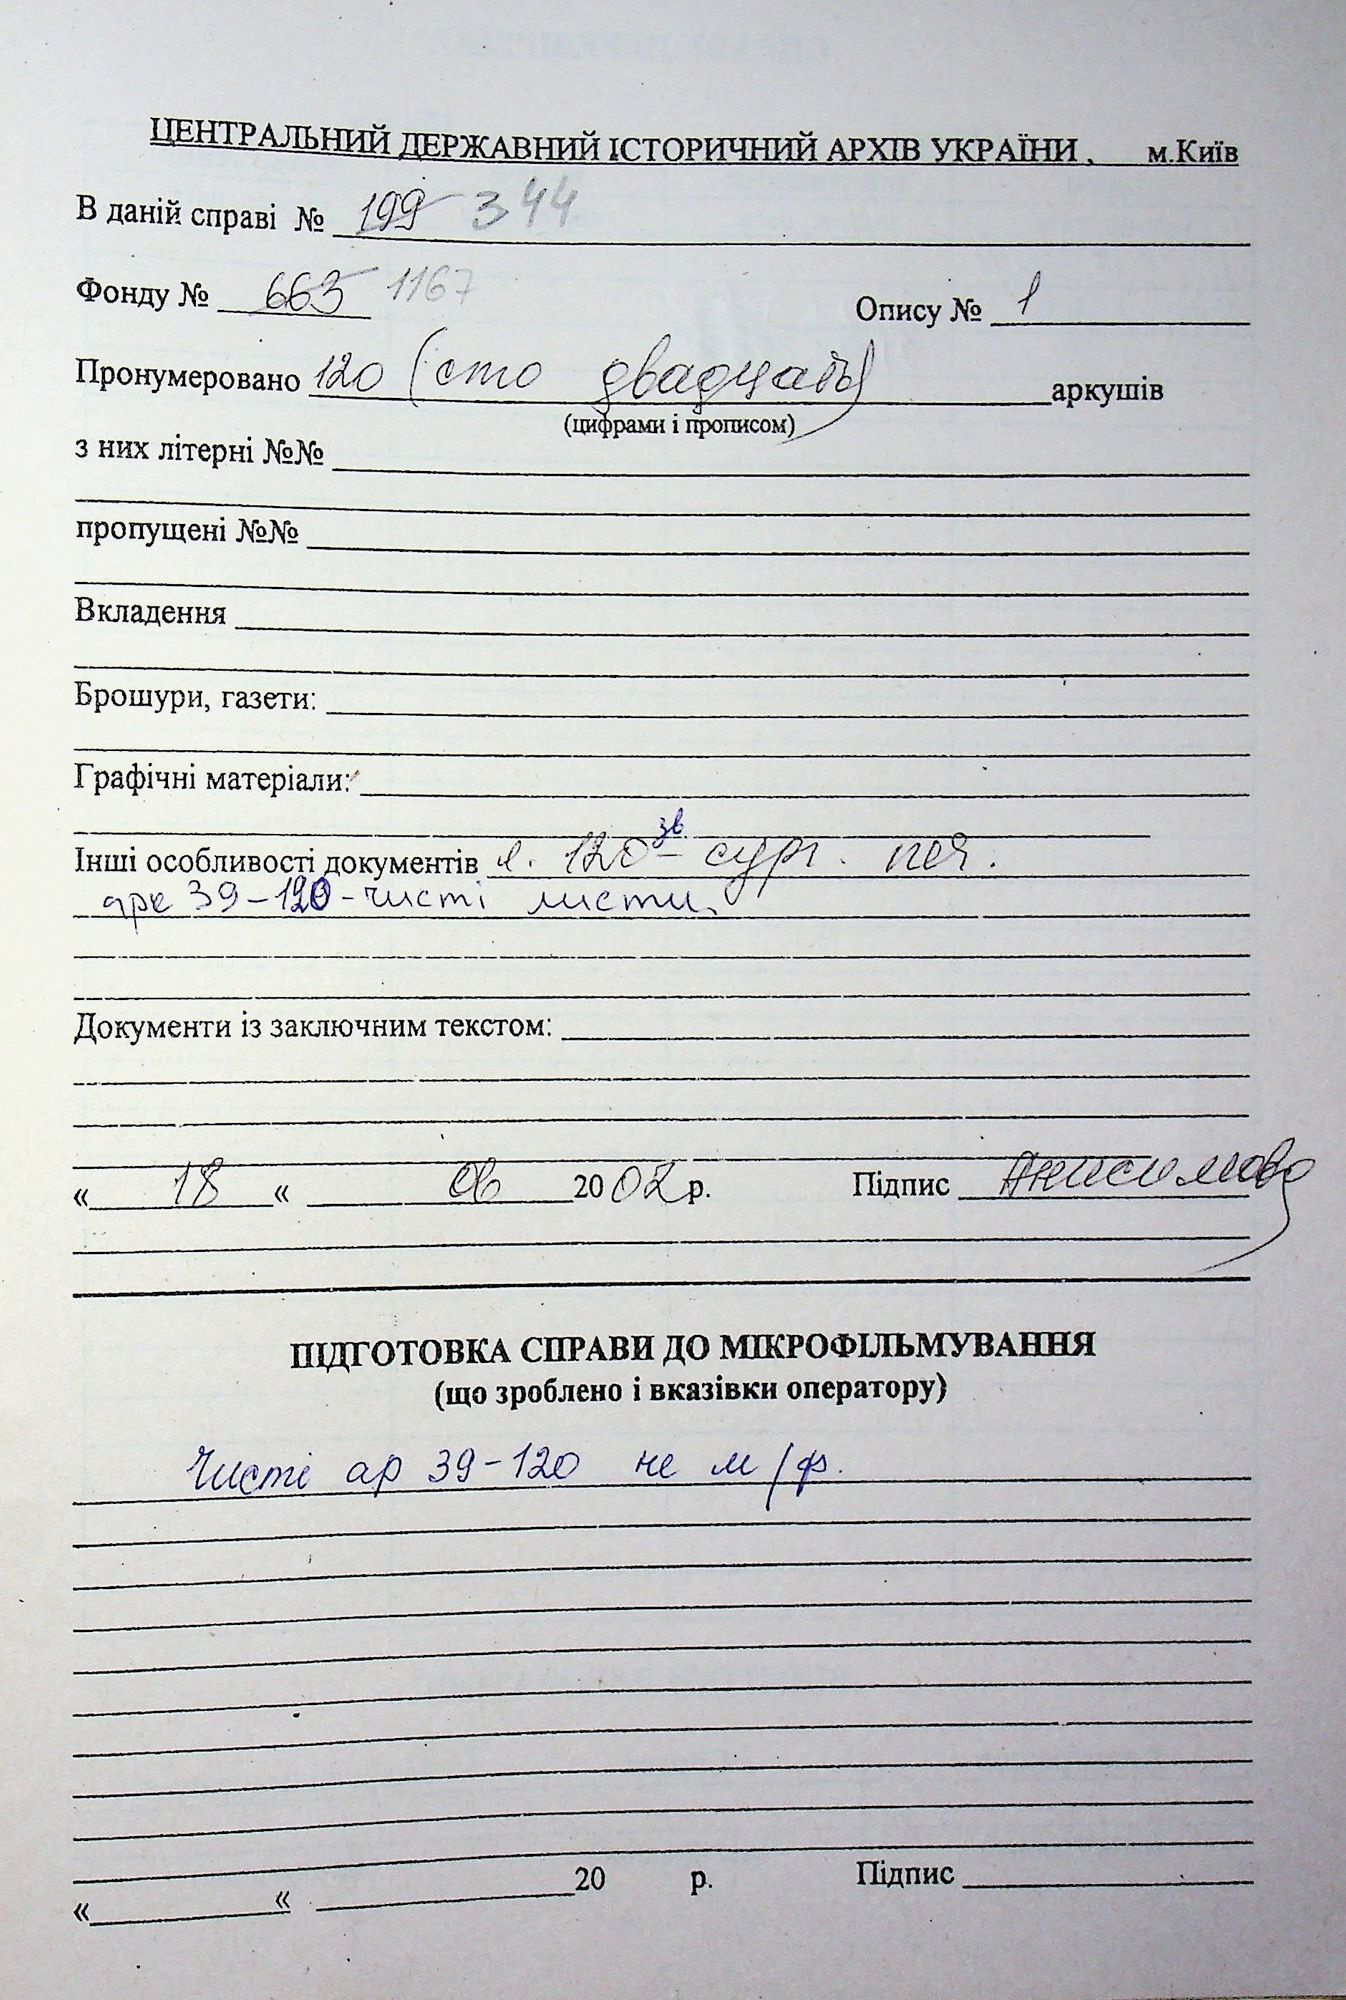 ЦЕНТРАЛЬНИЙ ДЕРЖАВНИЙ ІСТОРИЧНИЙ АРХІВ УКРАЇНИ, м.Київ
В даній справі № 199 344
Фонду № 663 1167 Опису № 1
Пронумеровано 120 (сто двадцать) аркушів
(цифрами і прописом)
з них літерні №№
пропущені №№
Вкладення
Брошури, газети:
Графічні матеріали:
Інші особливості документів л. 120 зв. – сург. печ.
арк 39-120 - чисті листи.
Документи із заключним текстом:
« 18 « 06 2002 р. Підпис Анисимова
ПІДГОТОВКА СПРАВИ ДО МІКРОФІЛЬМУВАННЯ
(що зроблено і вказівки оператору)
Чисті ар 39-120 не м/ф.
« « 20 р. Підпис